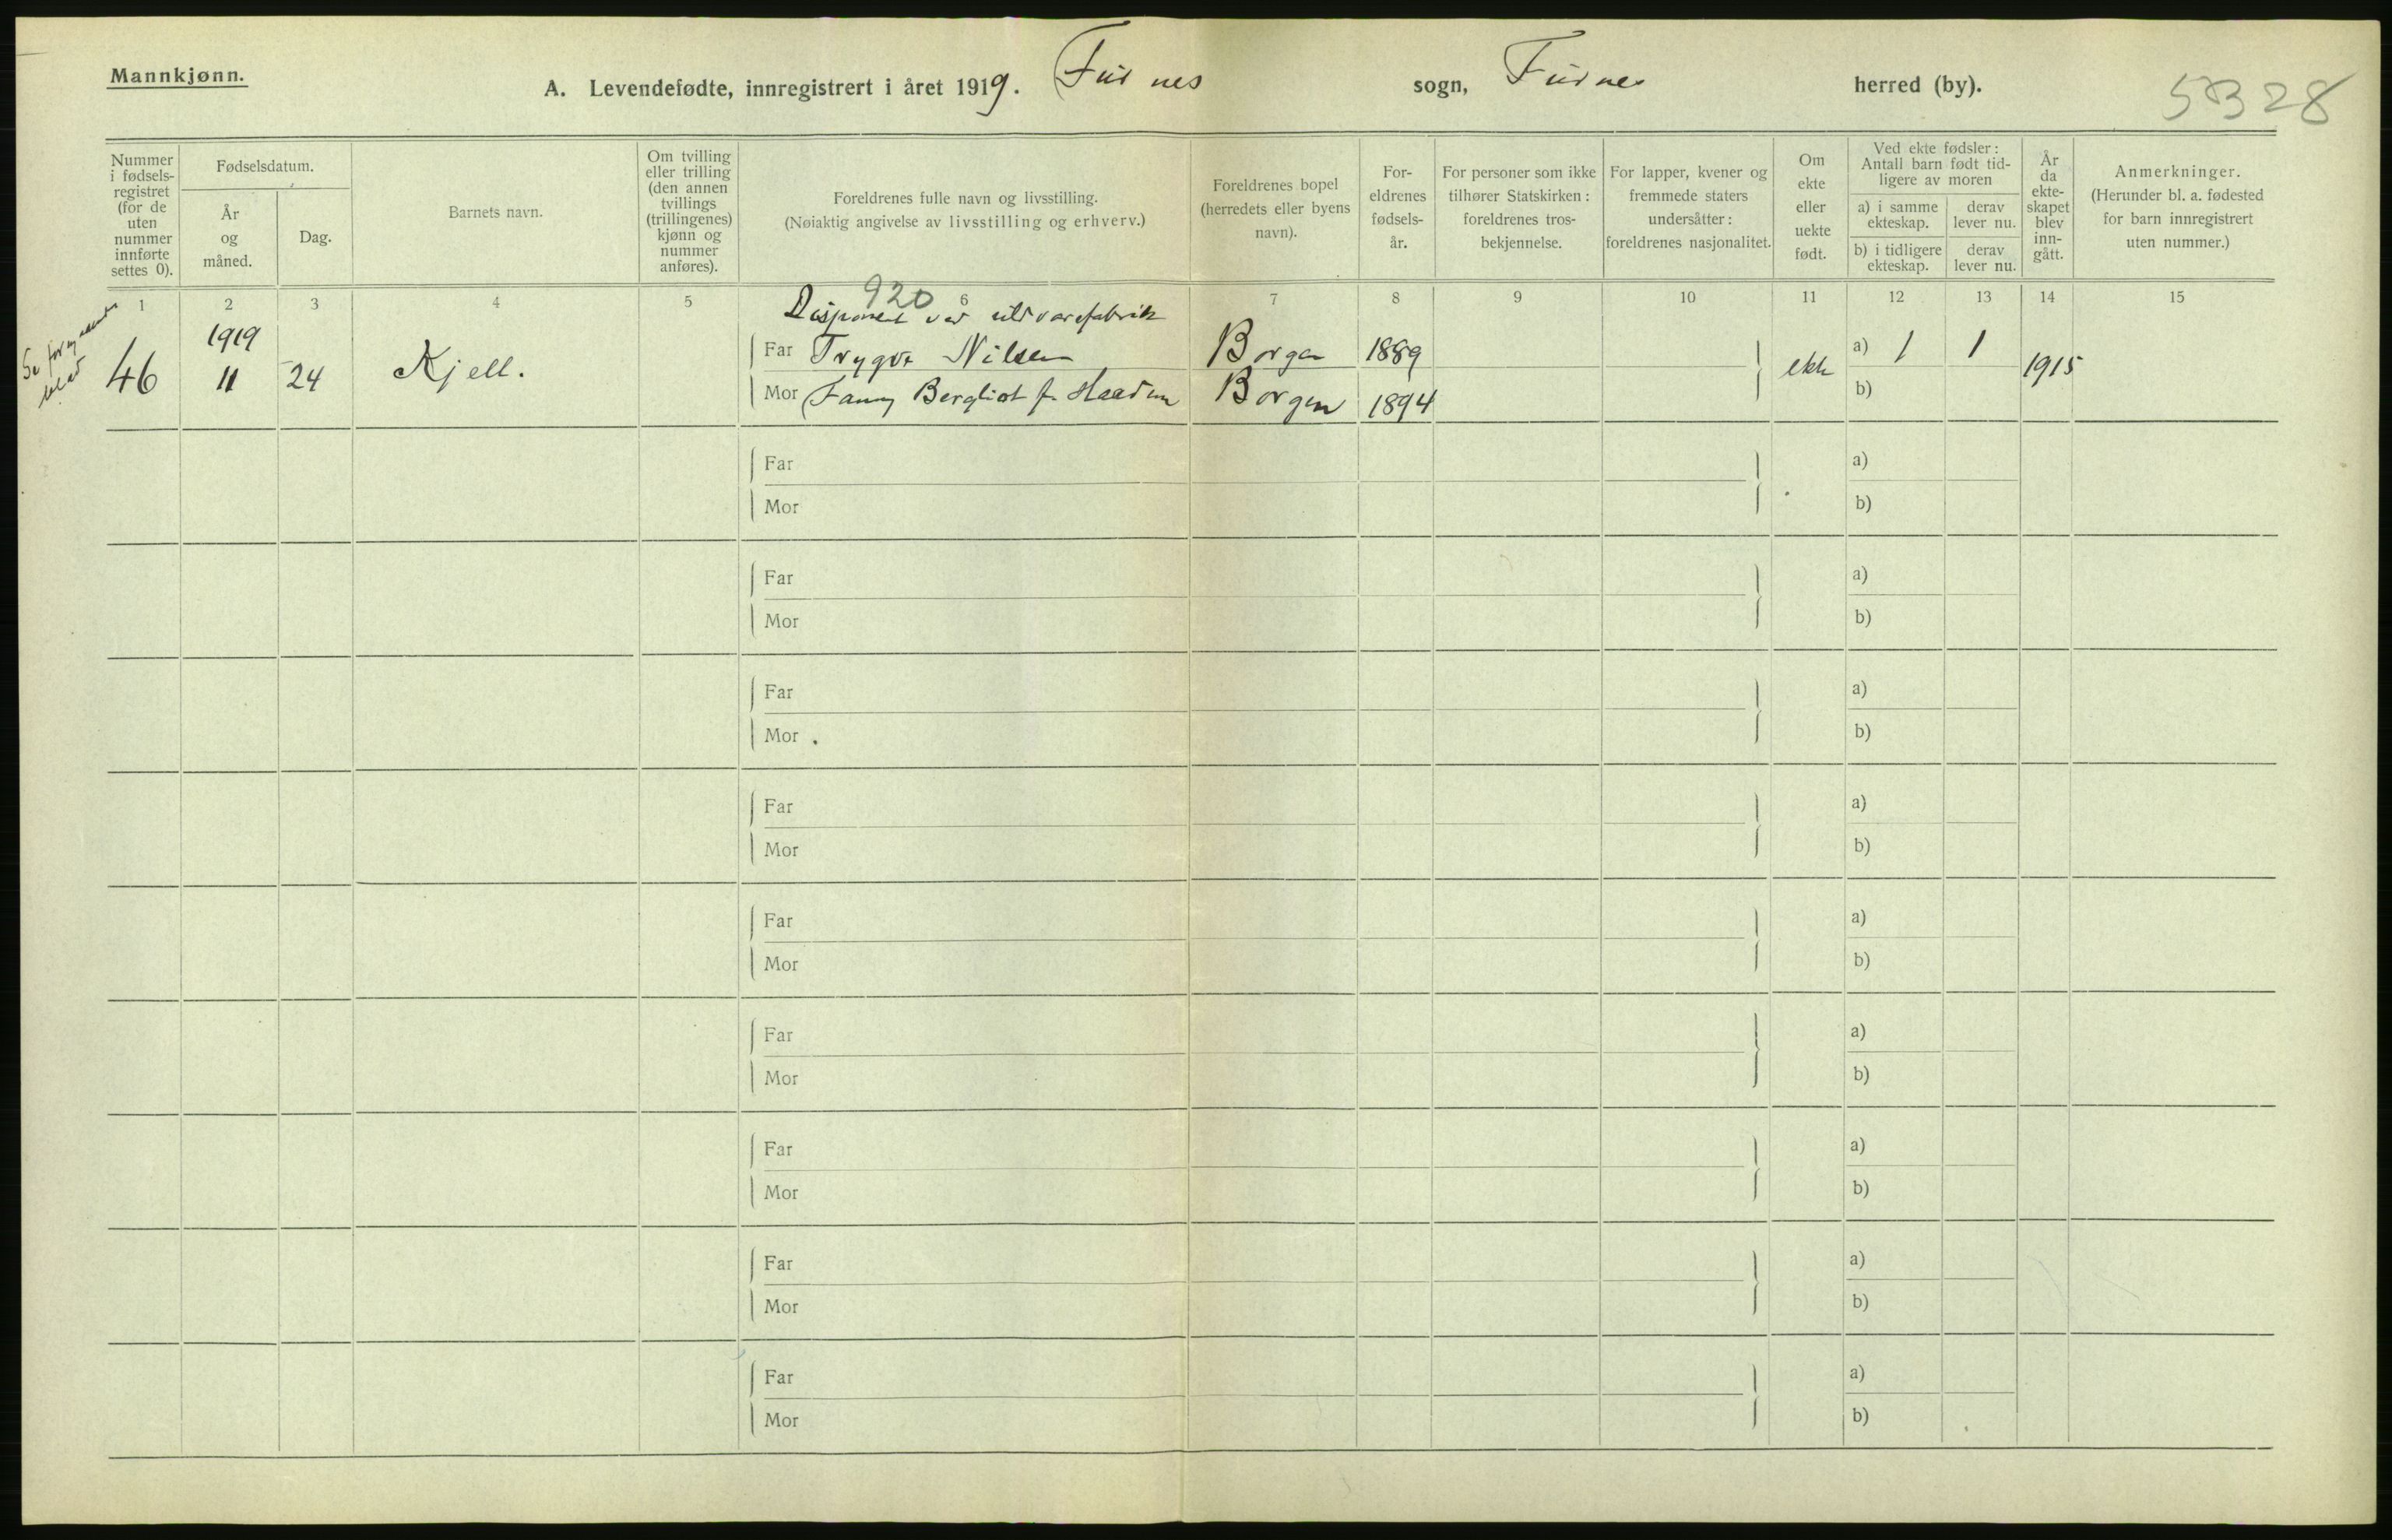 Mannkjønn.
A. Levendefødte, innregistrert i året 1919. Furnes sogn, Furnes herred (by).
5328
Nummer i fødsels-registret (for de uten nummer innførte settes 0).
Fødselsdatum.
År og måned.
Dag.
Barnets navn.
Om tvilling eller trilling (den annen tvillings (trillingenes) kjønn og nummer anføres).
Foreldrenes fulle navn og livsstilling.
(Nøiaktig angivelse av livsstilling og erhverv.)
Foreldrenes bopel (herredets eller byens navn).
For-eldrenes fødsels-år.
For personer som ikke tilhører Statskirken: foreldrenes tros-bekjennelse.
For lapper, kvener og fremmede staters undersåtter: foreldrenes nasjonalitet.
Om ekte eller uekte født.
Ved ekte fødsler: Antall barn født tid-ligere av moren
a) i samme ekteskap.
derav lever nu.
b) i tidligere ekteskap.
derav lever nu.
År da ekte-skapet blev inn-gått.
Anmerkninger.
(Herunder bl. a. fødested for barn innregistrert uten nummer.)
1 2 3 4 5 6 7 8 9 10 11 12 13 14 15
920
Disponent ved uldvarefabrik
46 1919 11 24 Kjell.
Far Trygve Nilsen Borgen 1889 ekte a) 1 1 1915
Mor Fanny Bergliot f. Borgen 1894 b)
Far a)
Mor b)
Far a)
Mor b)
Far a)
Mor b)
Far a)
Mor b)
Far a)
Mor b)
Far a)
Mor b)
Far a)
Mor b)
Far a)
Mor b)
Far a)
Mor b)